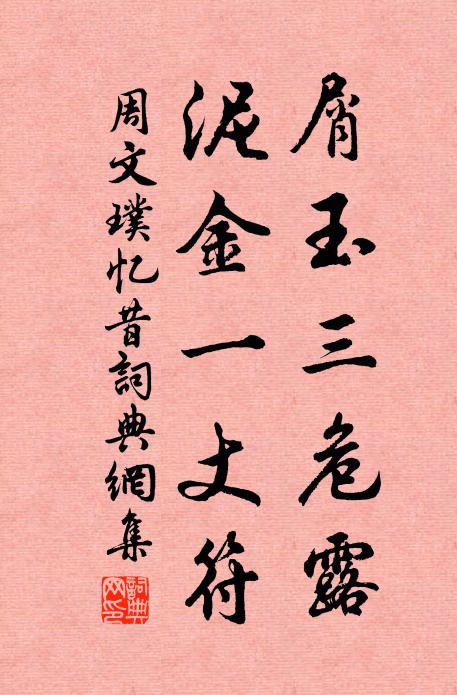 屑玉三危露
泥金一丈符
周文璞忆昔詞典網集
詞典網印